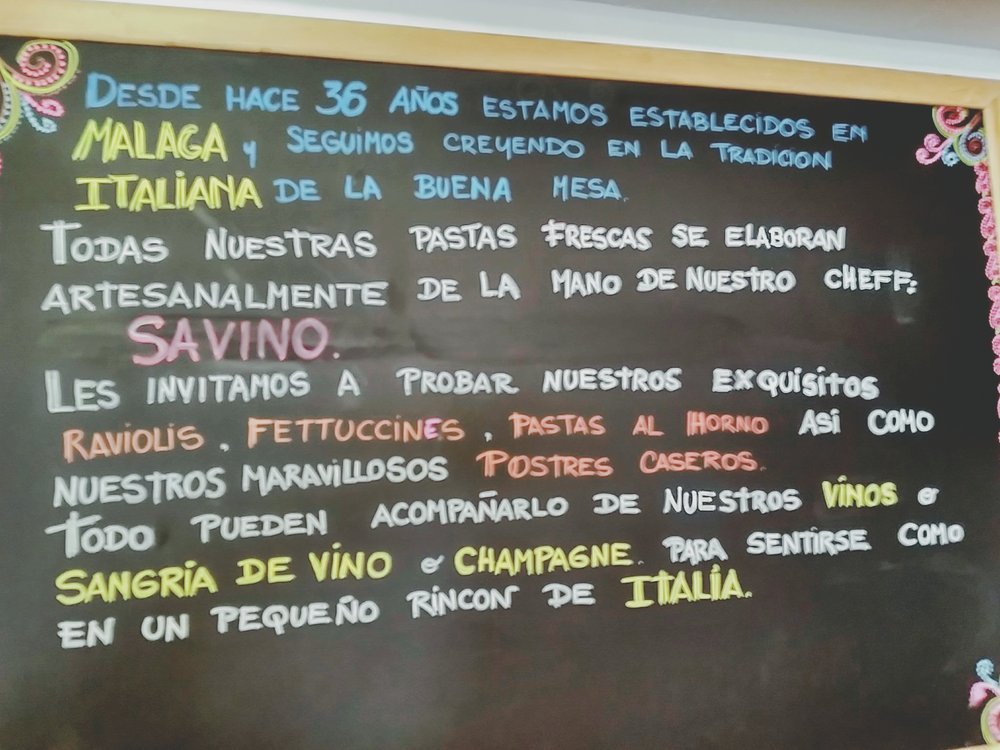 DESDE HACE 36 AÑOS ESTAMOS ESTABLECIDOS EN
MALAGA y SEGUIMOS CREYENDO EN LA TRADICION
ITALIANA DE LA BUENA MESA.
TODAS NUESTRAS PASTAS FRESCAS SE ELABORAN
ARTESANALMENTE DE LA MANO DE NUESTRO CHEFF:
SAVINO.
LES INVITAMOS A PROBAR NUESTROS EXQUISITOS
RAVIOLIS, FETTUCCINES, PASTAS AL HORNO ASI COMO
NUESTROS MARAVILLOSOS POSTRES CASEROS.
TODO PUEDEN ACOMPAÑARLO DE NUESTROS VINOS o
SANGRIA DE VINO o CHAMPAGNE. PARA SENTIRSE COMO
EN UN PEQUEÑO RINCON DE ITALIA.